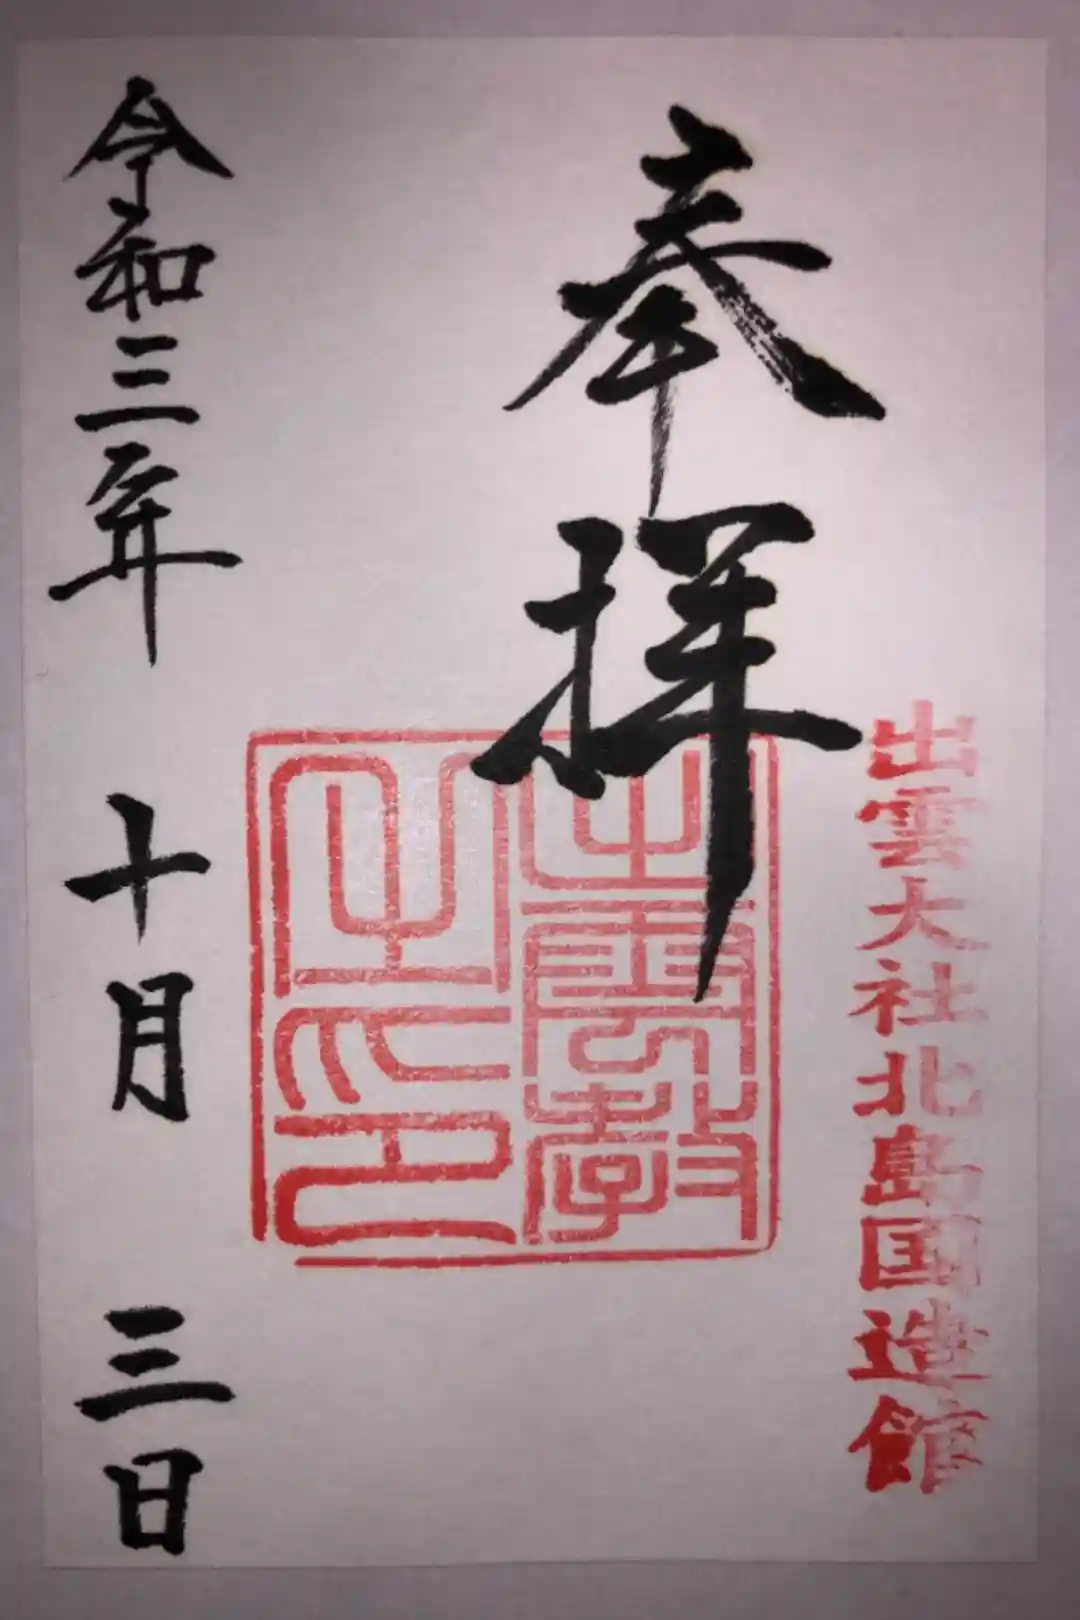 奉拝
出雲大社北島国造館
出雲教
之印
令和三年 十月 三日